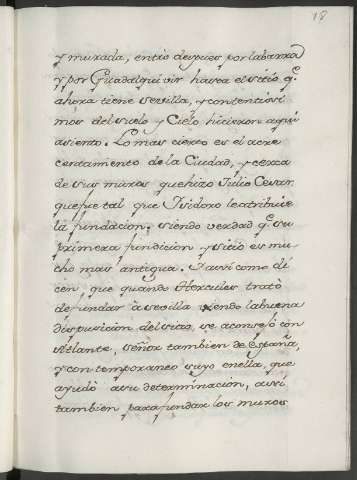 18
y murada, entro despues por la barra
y por Guadalquivir hasta el sitio q.e
ahora tiene Sevilla, y contentissi
mos del suelo y Cielo hicieron aqui
asiento. Lo mas cierto es el acre
centamiento de la Ciudad, y cerca
de sus muros que hizo Julio Cesar
que fue tal que Isidoro le atribuie
la fundacion. siendo verdad q.e su
primera fundicion y sitio es mu
cho mas antigua. Y assi como di
cen, que quando Hercules trató
de fundar a sevilla viendo la buena
disposicion del sitio, se aconsejó con
Atlante, señor tambien de España,
y contemporaneo suyo en ella, que
ayudó a su determinacion, assi
tambien para fundar los muros